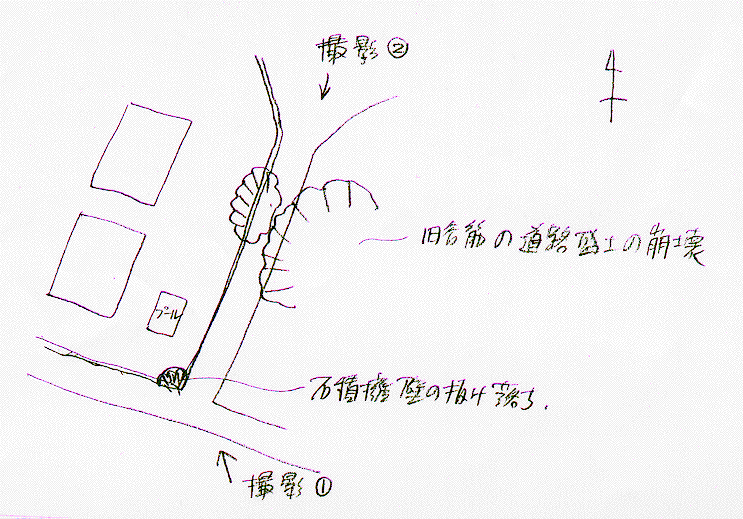 撮影②
旧谷筋の道路盛土の崩壊
プール
石積擁壁の抜け落ち.
撮影①